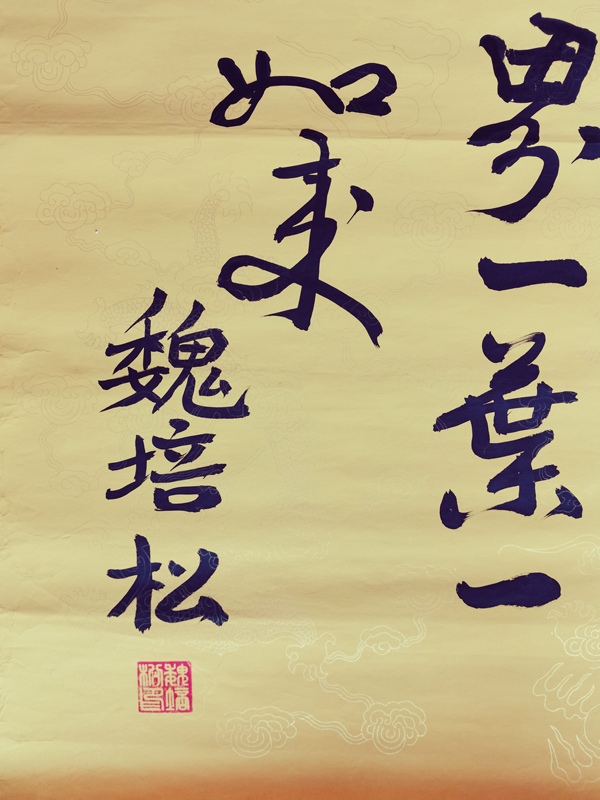 界一葉一
如來
魏培松
魏培松印